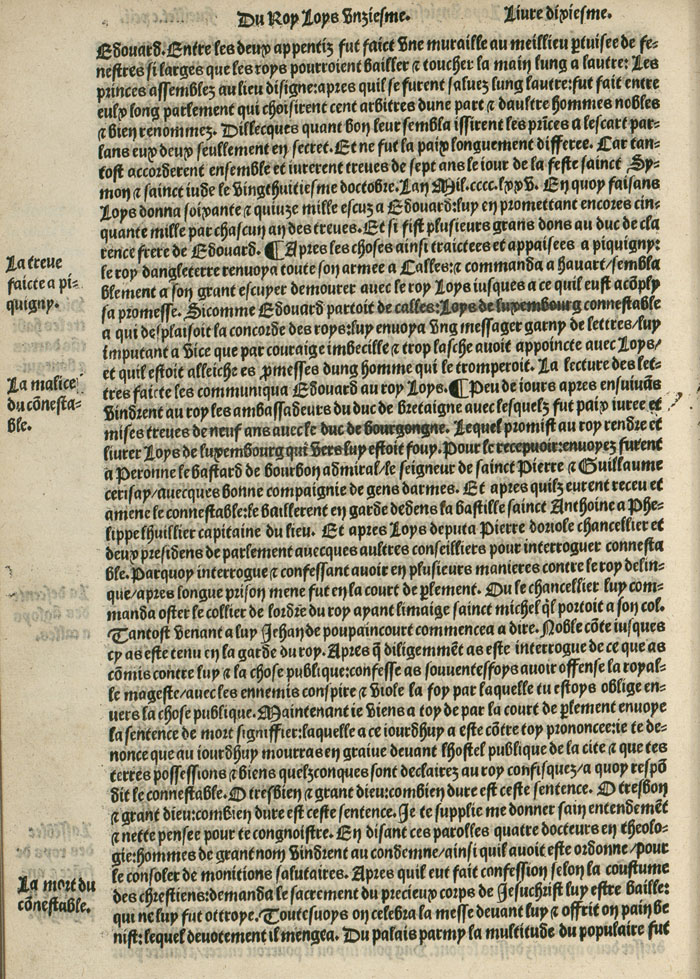 Du Roy Loys Vnziesme. Liure dixiesme.
Edouard. Entre les deux appentiz fut faict vne muraille au meillieu ptuisee de fe-
nestres si larges que les roys pourroient bailler ⁊ toucher la main lung a lautre: Les
princes assemblez au lieu disigne: apres quil se furent saluez lung lautre: fut fait entre
eulx long parlement qui choisirent cent arbitres dune part ⁊ daultre hommes nobles
⁊ bien renommez. Dillecques quant bon leur sembla issirent les prīces a lescart par-
lans eux deux seullement en secret. Et ne fut la paix longuement differee. Car tan-
tost accorderent ensemble et iurerent treues de sept ans le iour de la feste sainct Sy-
mon ⁊ sainct iude le vingthuitiesme doctobre. Lan Mil.cccc.lxxv. En quoy faisans
Loys donna soixante ⁊ quiuze mille escuz a Edouard: luy en promettant encores cin-
quante mille par chascun an des treues. Et si fist plusieurs grans dons au duc de cla
rence frere de Edouard. ¶ Apres les choses ainsi traictees et appaisees a piquigny:
le roy dangleterre renuoya toute son armee a Calles: ⁊ commanda a hauart/sembla
blement a son grant escuyer demourer avec le roy Loys iusques a ce quil eust acōply
sa promesse. Sicomme Edouard partoit de calles: Loys de luxembourg connestable
a qui desplaisoit la concorde des roys: luy enuoya vng messager garny de lettres/luy
imputant a vice que par couraige imbecille ⁊ trop lasche auoit appointe auec Loys/
et quil estoit alleiche es ꝓmesses dung homme qui le tromperoit. La lecture des let-
tres faicte les communiqua Edouard au roy Loys. ¶ Peu de iours apres ensuiuās
vindrent au roy les ambassadeurs du duc de bretaigne auec lesquelz fut paix iuree et
mises treues de neuf ans auec le duc de bourgongne. Lequel promist au roy rendre et
liurer Loys de luxembourg qui vers luy estoit fouy. Pour le recepuoir: enuoyez furent
a Peronne le bastard de bourbon admiral/le seigneur de sainct Pierre ⁊ Guillaume
cerisay/auecques bonne compaignie de gens darmes. Et apres quilz eurent receu et
amene le connestable: le baillerent en garde dedens la bastille sainct Anthoine a Phe-
lippe lhuillier capitaine du lieu. Et apres Loys deputa Pierre doriole chancellier et
deux presidens de parlement auecques aultres conseilliers pour interroguer connesta
ble. Parquoy interrogue ⁊ confessant auoir en plusieurs manieres contre le roy delin-
que/apres longue prison mene fut en la court de plement. Ou le chancellier luy com-
manda oster le collier de lordre du roy ayant limaige sainct michel ql portoit a son col.
Tantost venant a luy Jehan de poupaincourt commencea a dire. Noble cōte iusques
cy as este tenu en la garde du roy. Apres q̄ diligemmēt as este interrogue de ce que as
cōmis contre luy ⁊ la chose publique: confesse as souuentesfoys auoir offense la royal-
le mageste/auec les ennemis conspire ⁊ viole la foy par laquelle tu estoys oblige en-
uers la chose publique. Maintenant ie viens a toy de par la court de plement enuoye
la sentence de mort signiffier: laquelle a ce iourdhuy a este cōtre toy prononcee: ie te de-
nonce que au iourdhuy mourras en graiue deuant lhostel publique de la cite ⁊ que tes
terres possessions ⁊ biens quelzconques sont declairez au roy confisquez/a quoy respō
dit le connestable. O tresbien ⁊ grant dieu: combien dure est ceste sentence. O tresbon
⁊ grant dieu: combien dure est ceste sentence. Je te supplie me donner sain entendemēt
⁊ nette pensee pour te congnoistre. En disant ces parolles quatre docteurs en theolo-
gie: hommes de grant nom vindrent au condemne/ainsi quil auoit este ordonne/pour
le consoler de monitions salutaires. Apres quil eut fait confession selon la coustume
des chrestiens: demanda le sacrement du precieux corps de Jesuchrist luy estre bailler:
qui ne luy fut ottroye. Toutesuoys on celebra la messe deuant luy ⁊ offrit on pain be
nist: lequel deuotement il mengea. Du palais parmy la multitude du populaire fut
La treue
faicte a pi-
quigny.
La malice
du cōnesta-
ble.
La mort du
cōnestable.